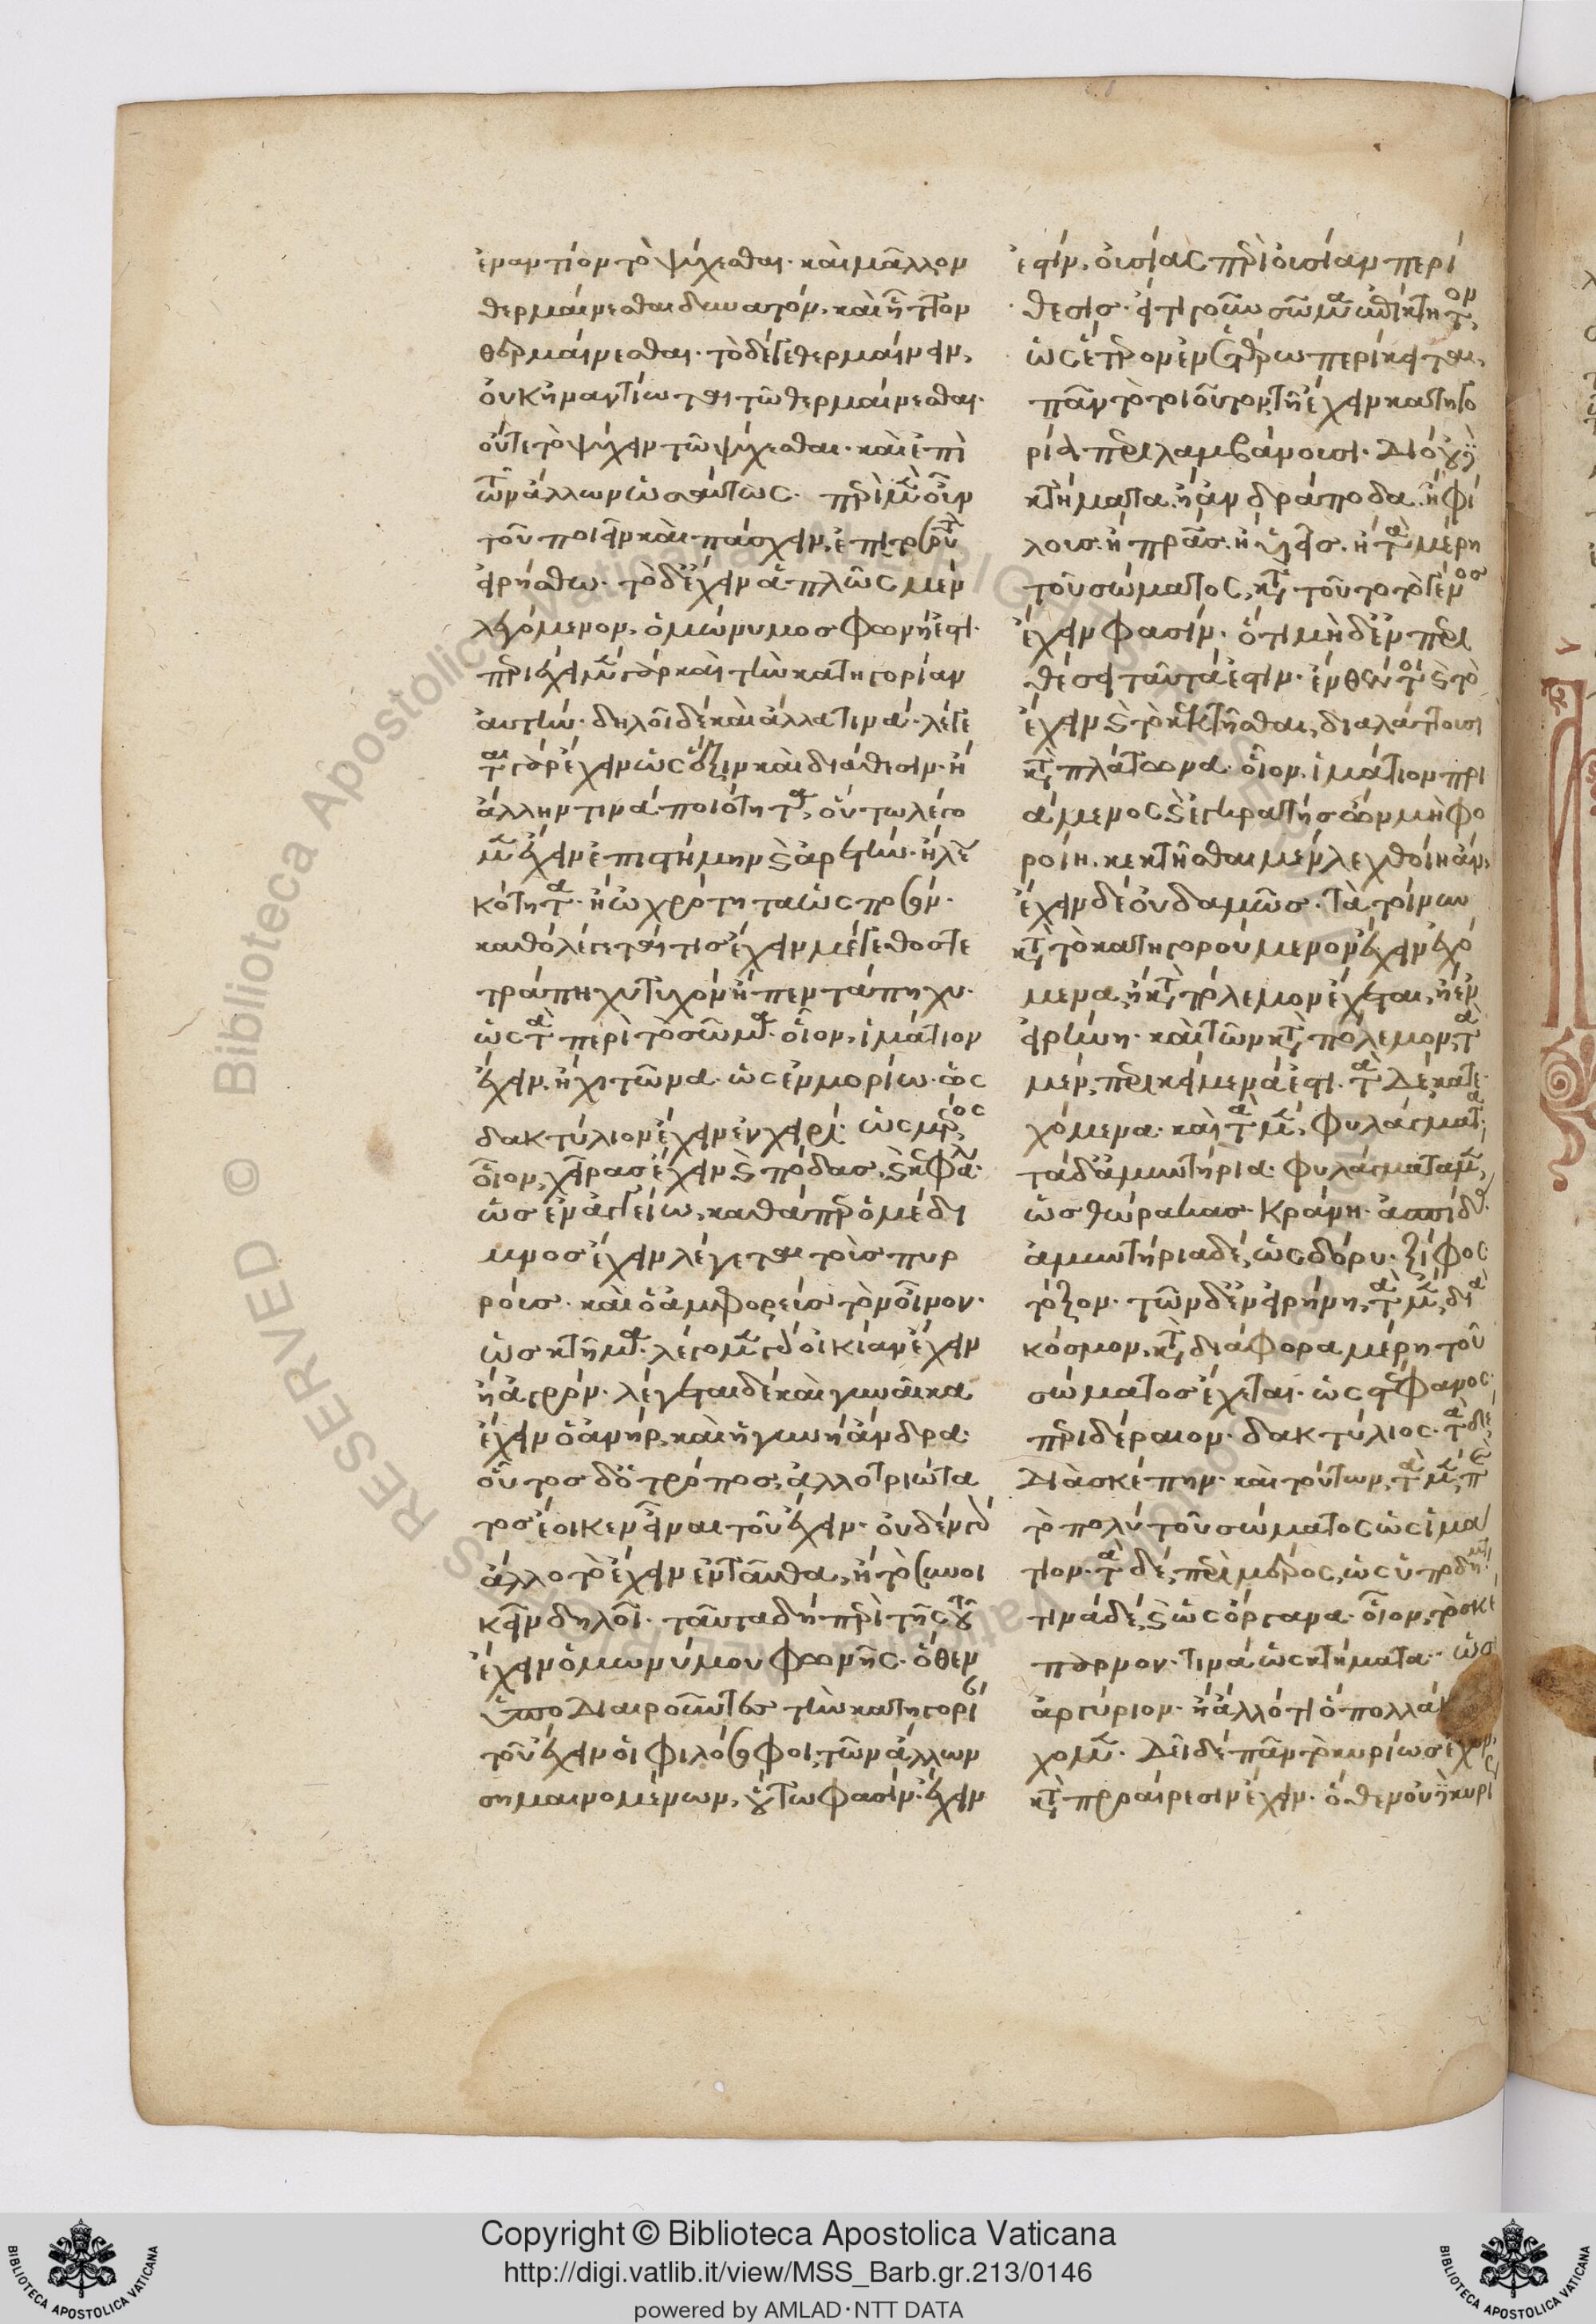 ἐναντίον τὸ ψύχεσθαι· καὶ μᾶλλον
θερμαίνεσθαι δυνατόν, καὶ ἧττον
θερμαίνεσθαι· τὸ δέ γε θερμαίνειν,
οὐκ ἠναντίωται τῶ θερμαίνεσθαι·
οὔτε τὸ ψύχειν τῶ ψύχεσθαι· καὶ ἐπὶ
τῶν ἄλλων ὡσαύτως· περὶ μὲν οὖν
τοῦ ποιεῖν καὶ πάσχειν,
εἰρήσθω· τὸ δὲ ἔχειν ἁπλῶς μὲν
λεγόμενον, ὁμώνυμος φωνή ἐστι·
περιέχει μὲν γὰρ καὶ τὴν κατηγορίαν
αὐτήν· δηλοῖ δὲ καὶ ἄλλα τινά· λέγε
ται γὰρ ἔχειν ὡς ἕξιν καὶ διάθεσιν· ἢ
ἄλλην τινὰ ποιότητα, οὕτω λέγο
μεν ἔχειν ἐπιστήμην καὶ ἀρετήν· ἢ λευ
κότητα· ἢ ὠχρότητα ὡς ποσόν·
καθὸ λέγεταί τις ἔχειν μέγεθος τε
τράπηχυ τυχὸν ἢ πεντάπηχυ·
ὡς τὰ περὶ τὸ σῶμα· οἷον, ἱμάτιον
ἔχειν, ἢ χιτῶνα· ὡς ἐν μορίω· ὡς
δακτύλιον ἔχειν ἐν χειρί· ὡς μέρος
οἷον, χεῖρας ἔχειν καὶ πόδας, καὶ κεφαλ·
ὡς ἐν ἀγγείω, καθάπερ ὁ μέδι
μνος ἔχειν λέγεται τοὺς πυ
ρούς· καὶ ὁ ἀμφορεὺς τὸν οἶνον·
ὡς κτῆμα· λέγομεν γὰρ οἰκίαν ἔχειν
ἢ ἀγρόν· λέγεται δὲ καὶ γυναῖκα
ἔχειν ὁ ἀνήρ, καὶ ἡ γυνὴ ἄνδρα·
οὗτος δὲ ὁ τρόπος, ἀλλοτριώτα
τος ἔοικεν εἶναι τοῦ ἔχειν· οὐδὲν γὰρ
ἄλλο τὸ ἔχειν ἐνταῦθα, ἢ τὸ συνοι
κεῖν δηλοῖ· ταῦτα δὴ περὶ τῆς τοῦ
ἔχειν ὁμωνύμου φωνῆς· ὅθεν
ὑποδιαιροῦντες τὴν κατηγορί
τοῦ ἔχειν οἱ φιλόσοφοι, τῶν ἄλλων
σημαινομένων, οὕτω φασίν· ἔχειν
ἐστίν, οὐσίας περὶ οὐσίαν περί
θεσις· εἴ τι γοῦν σῶμα ἐπίκτητον
ὡς ἕτερον ἐν ἑτέρω περίκειται,
πᾶν τὸ τοιοῦτον, τῆ ἔχειν κατηγο
ρία περιλαμβάνουσι· Διὸ οὐχὶ
κτήματα, ἢ ἀνδράποδα, ἢ φί
λους, ἢ πρας, ἢ υἱεῖς, ἢ τὰ μέρη
τοῦ σώματος, κατὰ τοῦτο τὸ γένος
ἔχειν φασίν· ὅτι μὴ δὲ ἐν περι
θέσει ταῦτά ἐστιν· ἐνθεν τοι καὶ τὸ
ἔχειν καὶ τὸ κεκτῆσθαι, διαλάττουσι
κατὰ πλάτωνα· οἷον, ἱμάτιον πρι
άμενος καὶ ἐγκρατὴς ὢν μὴ φο
ροίη, κεκτῆσθαι μὲν λεχθοίη ἄν,
ἔχειν δὲ οὐδαμῶς· Τὰ τοίνυν
κατὰ τὸ κατηγορούμενον ἔχειν ἐχό
μενα, ἢ κατὰ πόλεμον ἔχεται, ἢ ἐν
εἰρήνη· καὶ τῶν κατὰ πόλεμον, τὰ
μέν, περικείμενά ἐστι· τὰ δὲ κατε
χόμενα· καὶ τὰ μὲν, φυλάγματα
τὰ δὲ ἀμυντήρια· φυλάγματα μὲν,
ὡς θώρακας· κράνη· ἀσπίδ·
ἀμυντήρια δέ, ὡς δόρυ· ξίφος
τόξον· τῶν δὲ ἐν εἰρήνη, τὰ μὲν, διὰ
κόσμον, κατὰ διάφορα μέρη τοῦ
σώματος ἔχεται· ὡς στέφανος·
περιδέραιον· δακτύλιος· τὰ δὲ
Διὰ σκέπην· καὶ τούτων, τὰ μὲν, περὶ
τὸ πολὺ τοῦ σώματος ὡς ἱμά
τιον· τὰ δέ, περὶ μέρος, ὡς ὑπόδημ
τινὰ δέ, καὶ ὡς ὄργανα· οἷον, τὸ σκέ
παρνον· τινὰ ὡς κτήματα· ὡς
ἀργύριον· ἢ ἄλλό τι ὃ πολλά
χομεν· Δεῖ δὲ πᾶν τὸ κυρίως ἐχόμ
κατὰ προαίρεσιν ἔχειν· ὅθεν οὐχὶ κυρί
RESERVED © Biblioteca Apostolica Vaticana ALL RIGHTS
Copyright © Biblioteca Apostolica Vaticana
http://digi.vatlib.it/view/MSS_Barb.gr.213/0146
powered by AMLAD·NTT DATA
BIBLIOTECA APOSTOLICA VATICANA
BIBLIOTECA APOSTOLICA VATICANA